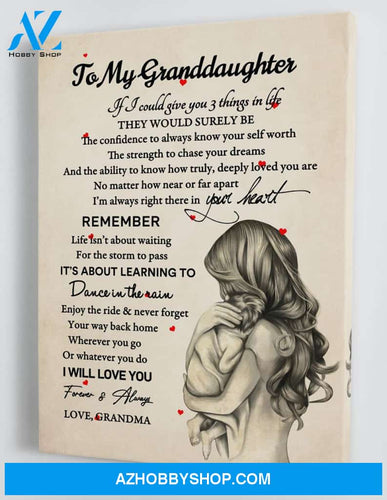 AZ
HOBBY SHOP
To My Granddaughter
If I could give you 3 things in life
THEY WOULD SURELY BE
The confidence to always know your self worth
The strength to chase your dreams
And the ability to know how truly, deeply loved you are
No matter how near or far apart
I'm always right there in your heart
REMEMBER
Life isn't about waiting
For the storm to pass
IT'S ABOUT LEARNING TO
Dance in the rain
Enjoy the ride & never forget
Your way back home
Wherever you go
Or whatever you do
I WILL LOVE YOU
Forever & Always
LOVE, GRANDMA
AZHOBBYSHOP.COM